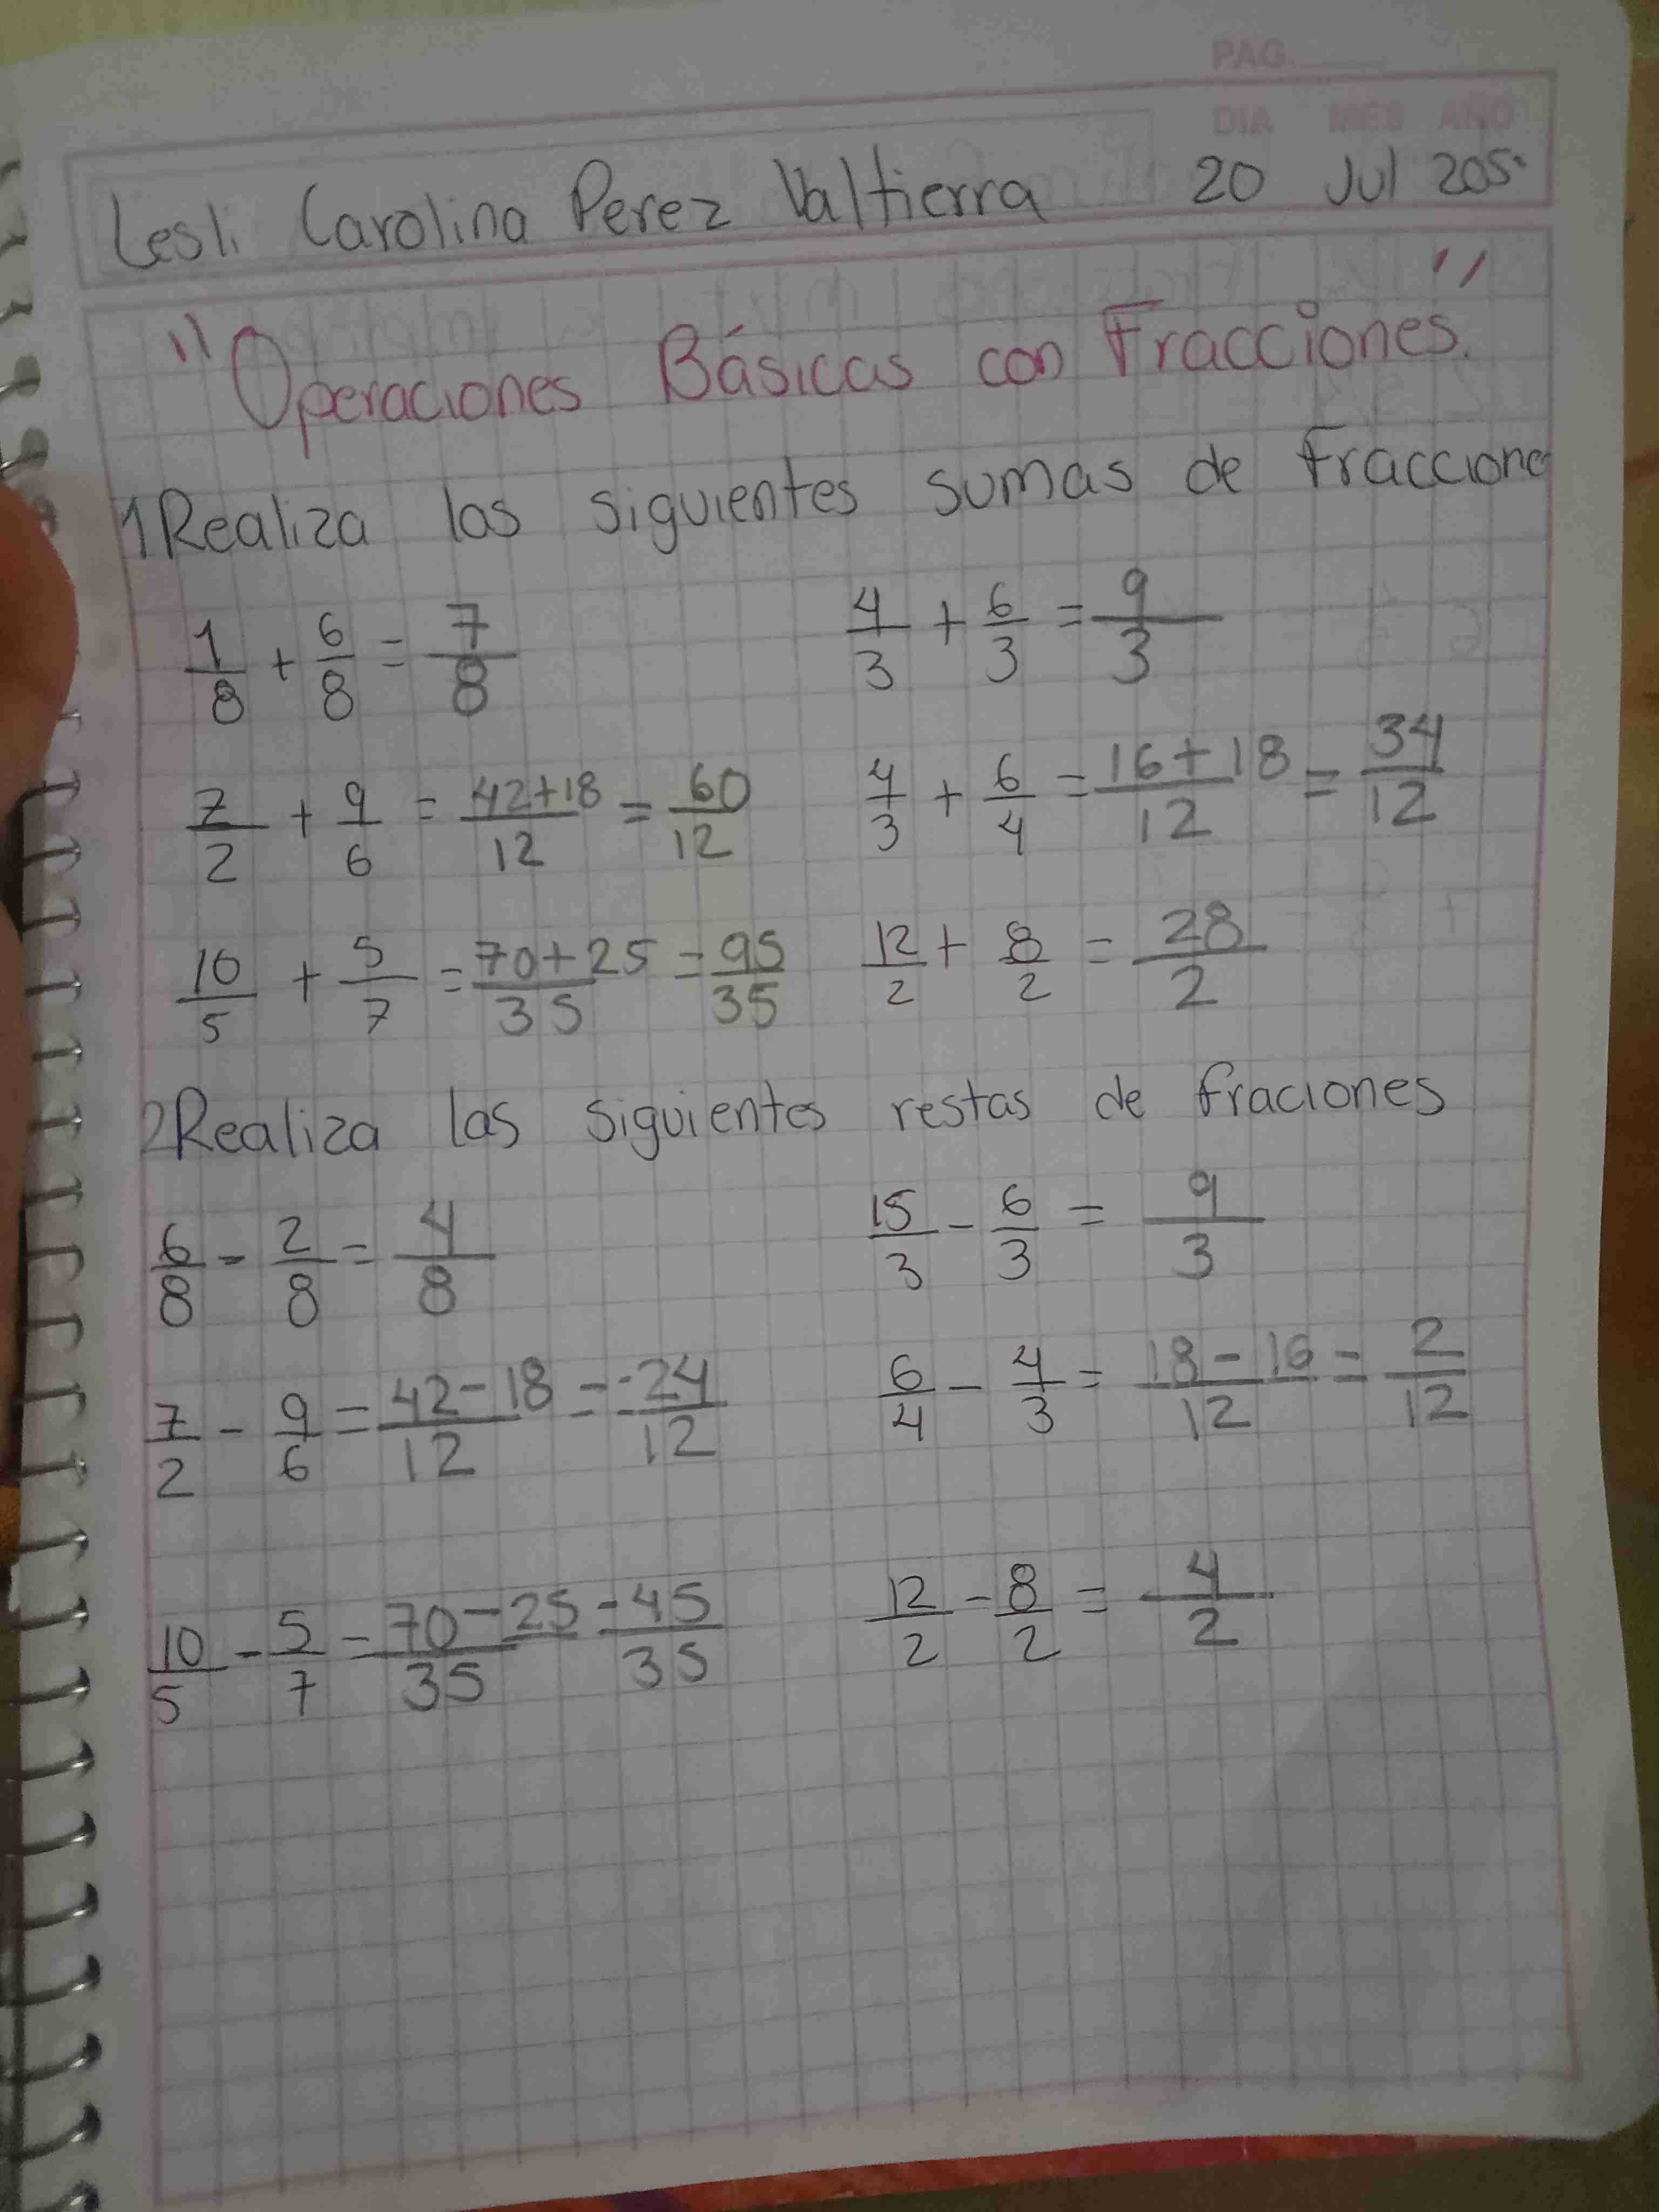 PAG.
DIA MES AÑO
Lesli Carolina Perez Valtierra 20 Jul 205
"Operaciones Básicas con Fracciones."
1 Realiza las siguientes sumas de fraccione
1/8 + 6/8 = 7/8 4/3 + 6/3 = 9/3
7/2 + 9/6 = 42+18/12 = 60/12 4/3 + 6/4 = 16+18/12 = 34/12
10/5 + 5/7 = 70+25/35 = 95/35 12/2 + 8/2 = 28/2
2 Realiza las siguientes restas de fraciones
6/8 - 2/8 = 4/8 15/3 - 6/3 = 9/3
7/2 - 9/6 = 42-18/12 = -24/12 6/4 - 4/3 = 18-16/12 = 2/12
10/5 - 5/7 = 70-25/35 = 45/35 12/2 - 8/2 = 4/2